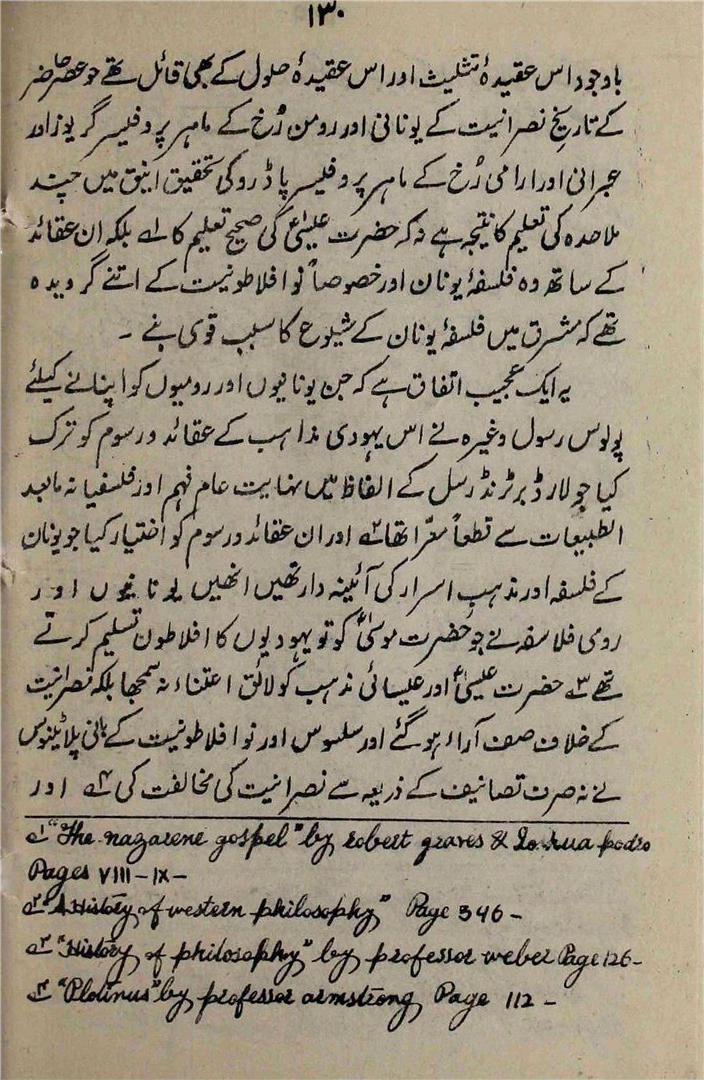 ۱۳۰
باوجود اس عقیدۂ تثلیث اور اس عقیدۂ حلول کے بھی قائل تھے جو عصر حاضر
کے تاریخِ نصرانیت کے یونانی اور رومن رُخ کے ماہر پروفیسر گریوز اور
عبرانی اور ارامی رُخ کے ماہر پروفیسر پاڈرو کی تحقیق انیق میں چند
ملاحدہ کی تعلیم کا نتیجہ ہے نہ کہ حضرت عیسیٰؑ کی صحیح تعلیم کا ۱ے بلکہ ان عقائد
کے ساتھ وہ فلسفۂ یونان اور خصوصاً نوافلاطونیت کے اتنے گرویدہ
تھے کہ مشرق میں فلسفۂ یونان کے شیلوع کا سبب قوی بنے ۔
یہ ایک عجیب اتفاق ہے کہ جن یونانیوں اور رومیوں کو اپنانے کیلئے
پولوس رسول وغیرہ نے اس یہودی مذاہب کے عقائد ورسوم کو ترک
کیا جو لارڈ برٹرنڈرسل کے الفاظ میں نہایت عام فہم اور فلسفیانہ مابعد
الطبیعات سے قطعاً معرّا تھا ۲ے اور ان عقائد ورسوم کو اختیار کیا جو یونان
کے فلسفہ اور مذہبِ اسرار کی آئینہ دار تھیں انھیں یونانیوں اور
رومی فلاسفہ نے جو حضرت موسیٰؑ کو تو یہودیوں کا افلاطون تسلیم کرتے
تھے ۳ے حضرت عیسیٰؑ اور عیسائی مذہب کو لائق اعتناء نہ سمجھا بلکہ نصرانیت
کے خلاف صف آراء ہو گئے اور سلسوس اور نوافلاطونیت کے بانی پلاٹینوس
نے نہ صرف تصانیف کے ذریعہ سے نصرانیت کی مخالفت کی ۴ے اور
۱ے "The nazarene gospel" by robert graves & Joshua podro
Pages VIII-IX-
۲ے "A History of western philosophy" Page 346-
۳ے "History of philosophy" by professor weber Page 126-
۴ے "Plotinus" by professor armstrong Page 112-